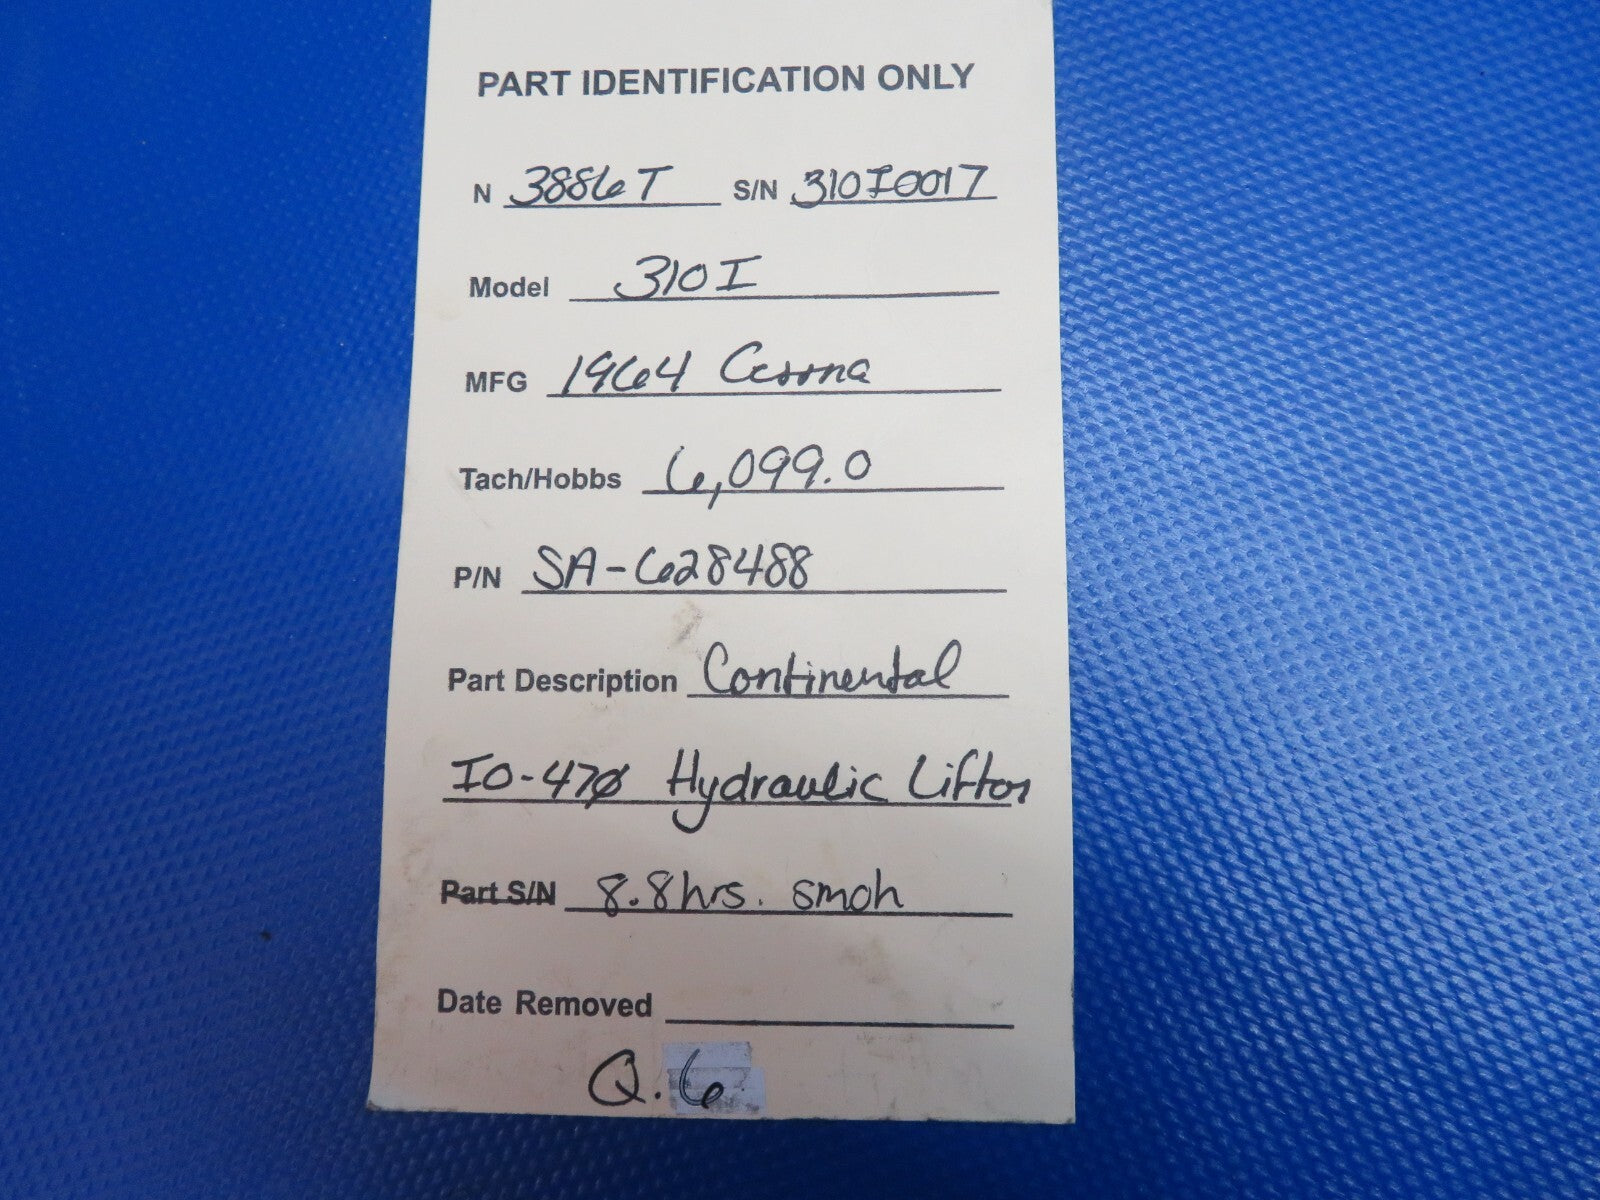 PART IDENTIFICATION ONLY
N 3886T S/N 310I0017
Model 310I
MFG 1964 Cessna
Tach/Hobbs 6,099.0
P/N SA-628488
Part Description Continental
IO-470 Hydraulic Lifter
Part S/N 8.8hrs. smoh
Date Removed
Q.6